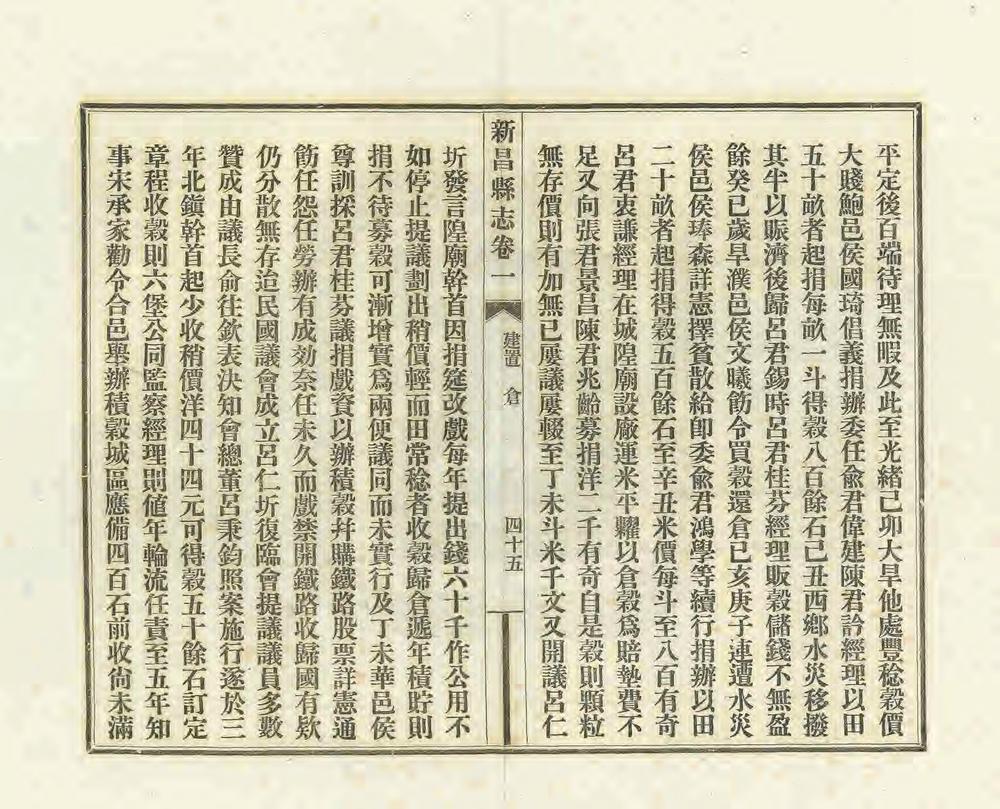 平定後百端待理無暇及此至光緒己卯大旱他處豐稔穀價
大賤鮑邑侯國琦倡義捐辦委任兪君偉建陳君詥經理以田
五十畝者起捐每畝一斗得穀八百餘石己丑西鄕水災移撥
其半以賑濟後歸呂君錫時呂君桂芬經理販穀儲錢不無盈
餘癸巳歲旱濮邑侯文曦飭令買穀還倉己亥庚子連遭水災
侯邑侯琫森詳憲擇貧散給卽委兪君鴻學等續行捐辦以田
二十畝者起捐得穀五百餘石至辛丑米價每斗至八百有奇
呂君衷謙經理在城隍廟設廠運米平糶以倉穀爲賠墊費不
足又向張君景昌陳君兆齡募捐洋二千有奇自是穀則顆粒
無存價則有加無已屢議屢輟至丁未斗米千文又開議呂仁
新昌縣志卷一
建置 倉
四十五
圻發言隍廟幹首因捐筵改戲每年提出錢六十千作公用不
如停止提議劃出稍價輕而田常稔者收穀歸倉遞年積貯則
捐不待募穀可漸增實爲兩便議同而未實行及丁未華邑侯
尊訓採呂君桂芬議捐戲資以辦積穀幷購鐵路股票詳憲通
飭任怨任勞辦有成効奈任未久而戲禁開鐵路收歸國有欵
仍分散無存迨民國議會成立呂仁圻復臨會提議議員多數
贊成由議長俞往欽表決知會總董呂秉鈞照案施行遂於三
年北鎭幹首起少收稍價洋四十四元可得穀五十餘石訂定
章程收穀則六堡公同監察經理則値年輪流任責至五年知
事宋承家勸令合邑舉辦積穀城區應備四百石前收尙未滿